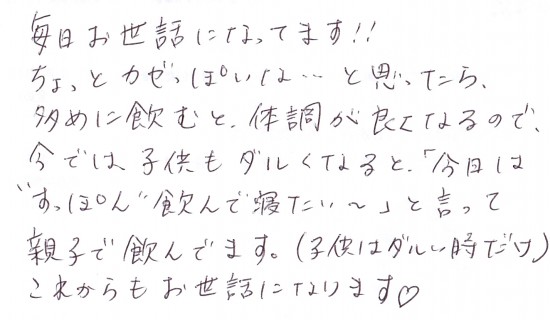 毎日お世話になってます!!
ちょっとカゼっぽいな…と思ったら、
多めに飲むと、体調が良くなるので、
今では子供もダルくなると、「今日は
"すっぽん"飲んで寝たい～」と言って
親子で飲んでます。(子供はダルい時だけ)
これからもお世話になります♡